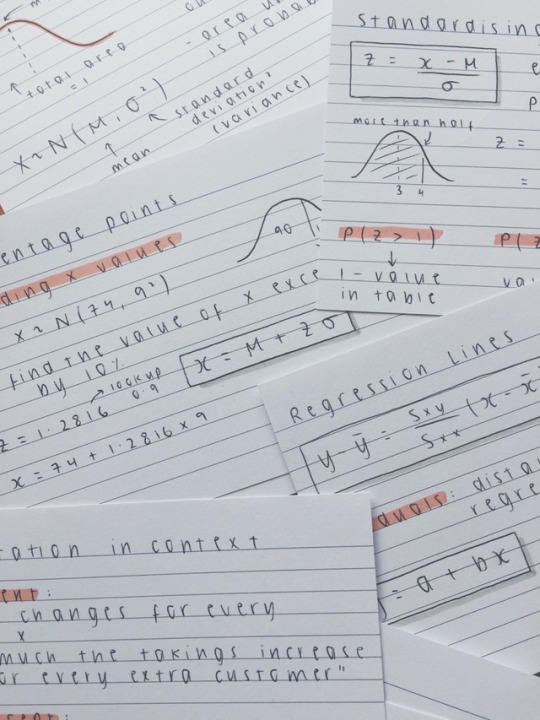 total area
= 1
X ~ N(μ, σ²)
mean
standard
deviation²
(variance)
- area u
is proba
standardising
z = x - μ / σ
more than half
3 4
z =
=
P(z > 1)
P(z
↓
1 - value
in table
va
entage points
ding x values
90
x ~ N(74, 9²)
find the value of x exce
by 10%
lookup
0.9
z = 1.2816
x = μ + zσ
x = 74 + 1.2816 × 9
Regression Lines
y - ȳ = Sxy / Sxx (x - x̄
duals: dista
regre
= a + bx
ation in context
ent:
changes for every
x
much the takings increase
or every extra customer"
cent: